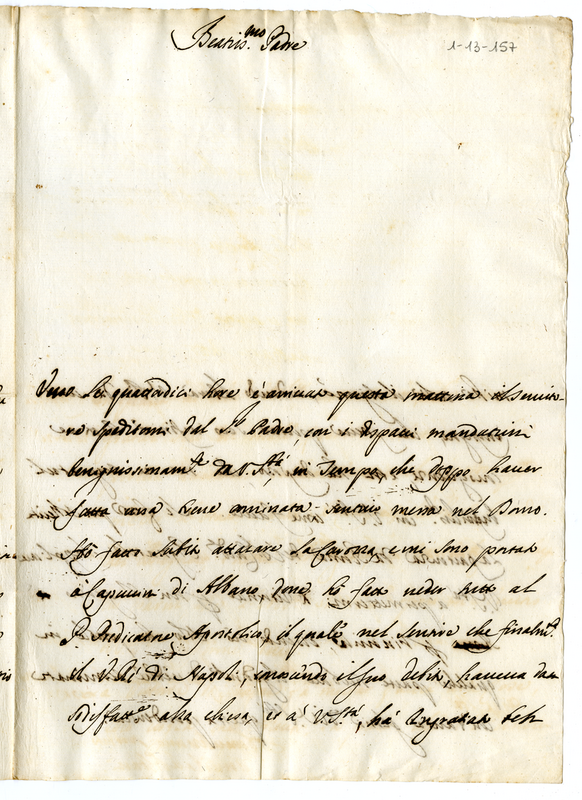 Beatis.mo Padre
1-13-157
Verso le quattordici hore è arrivato questa mattina il servito-
re speditomi dal P. Padre con i dispacci mandatimi
benignissimam.te da V. S.tà, in tempo, che doppo haver
fatta una breve caminata sentivo messa nel Duomo.
Hò fatto subito attaccare la Carozza, e mi sono portato
a Capuccini di Albano, dove hò fatto veder tutto al
P. Predicatore Apostolico, il quale nel sentire che finalm.te
il V. Rè di Napoli, conoscendo il suo debito, haveva dato
sodisfatt.e alla chiesa, et a V. S.tà, hà